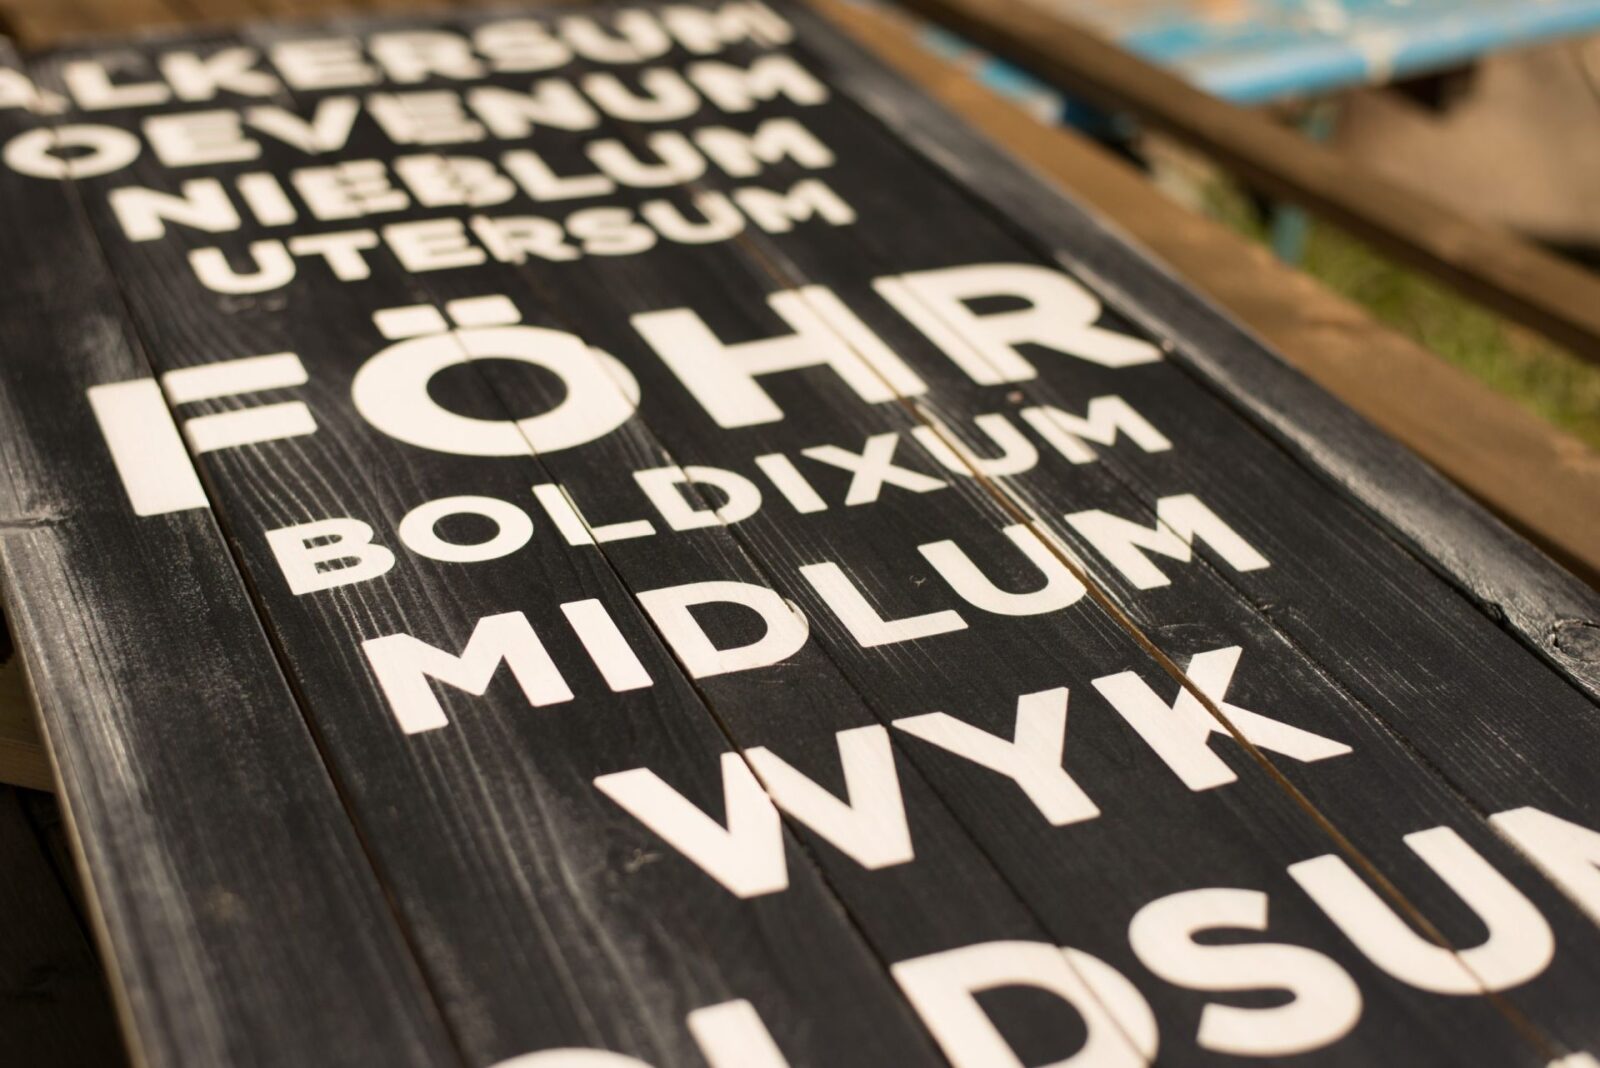 ALKERSUM
OEVENUM
NIEBLUM
UTERSUM
FÖHR
BOLDIXUM
MIDLUM
WYK
OLDSUM